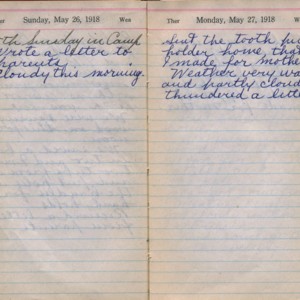 Sunday, May 26, 1918
Ther
Wea
th Sunday in Camp
Wrote a letter to
parents.
Cloudy this morning.
Ther
Monday, May 27, 1918
Wea
Sent the tooth pic
holder home, that
I made for mother
Weather very wa
and partly cloud
thundered a litt